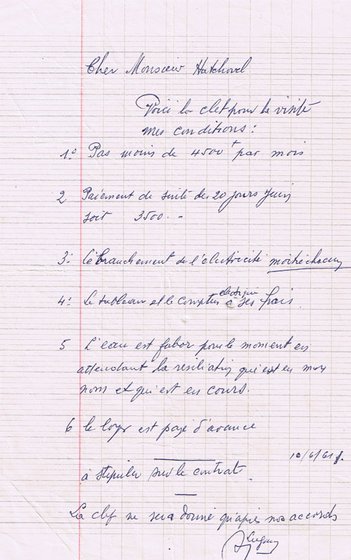 Cher Monsieur Hatchovel
Voici la clef pour la visite
mes conditions :
1° Pas moins de 4500 f par mois
2 Paiement de suite des 20 jours Juin
soit 3500. -
3: le branchement de l'electricité moitié chacun
4: le tableau et le compteur electrique à ses frais.
5 L'eau est pour le moment en
attendant la resiliation qui est en mon
nom et qui est en cours.
6 le loyer est paye d'avance
10/6/61
à stipuler sur le contrat.
La clef ne sera donné qu'apres nos accords